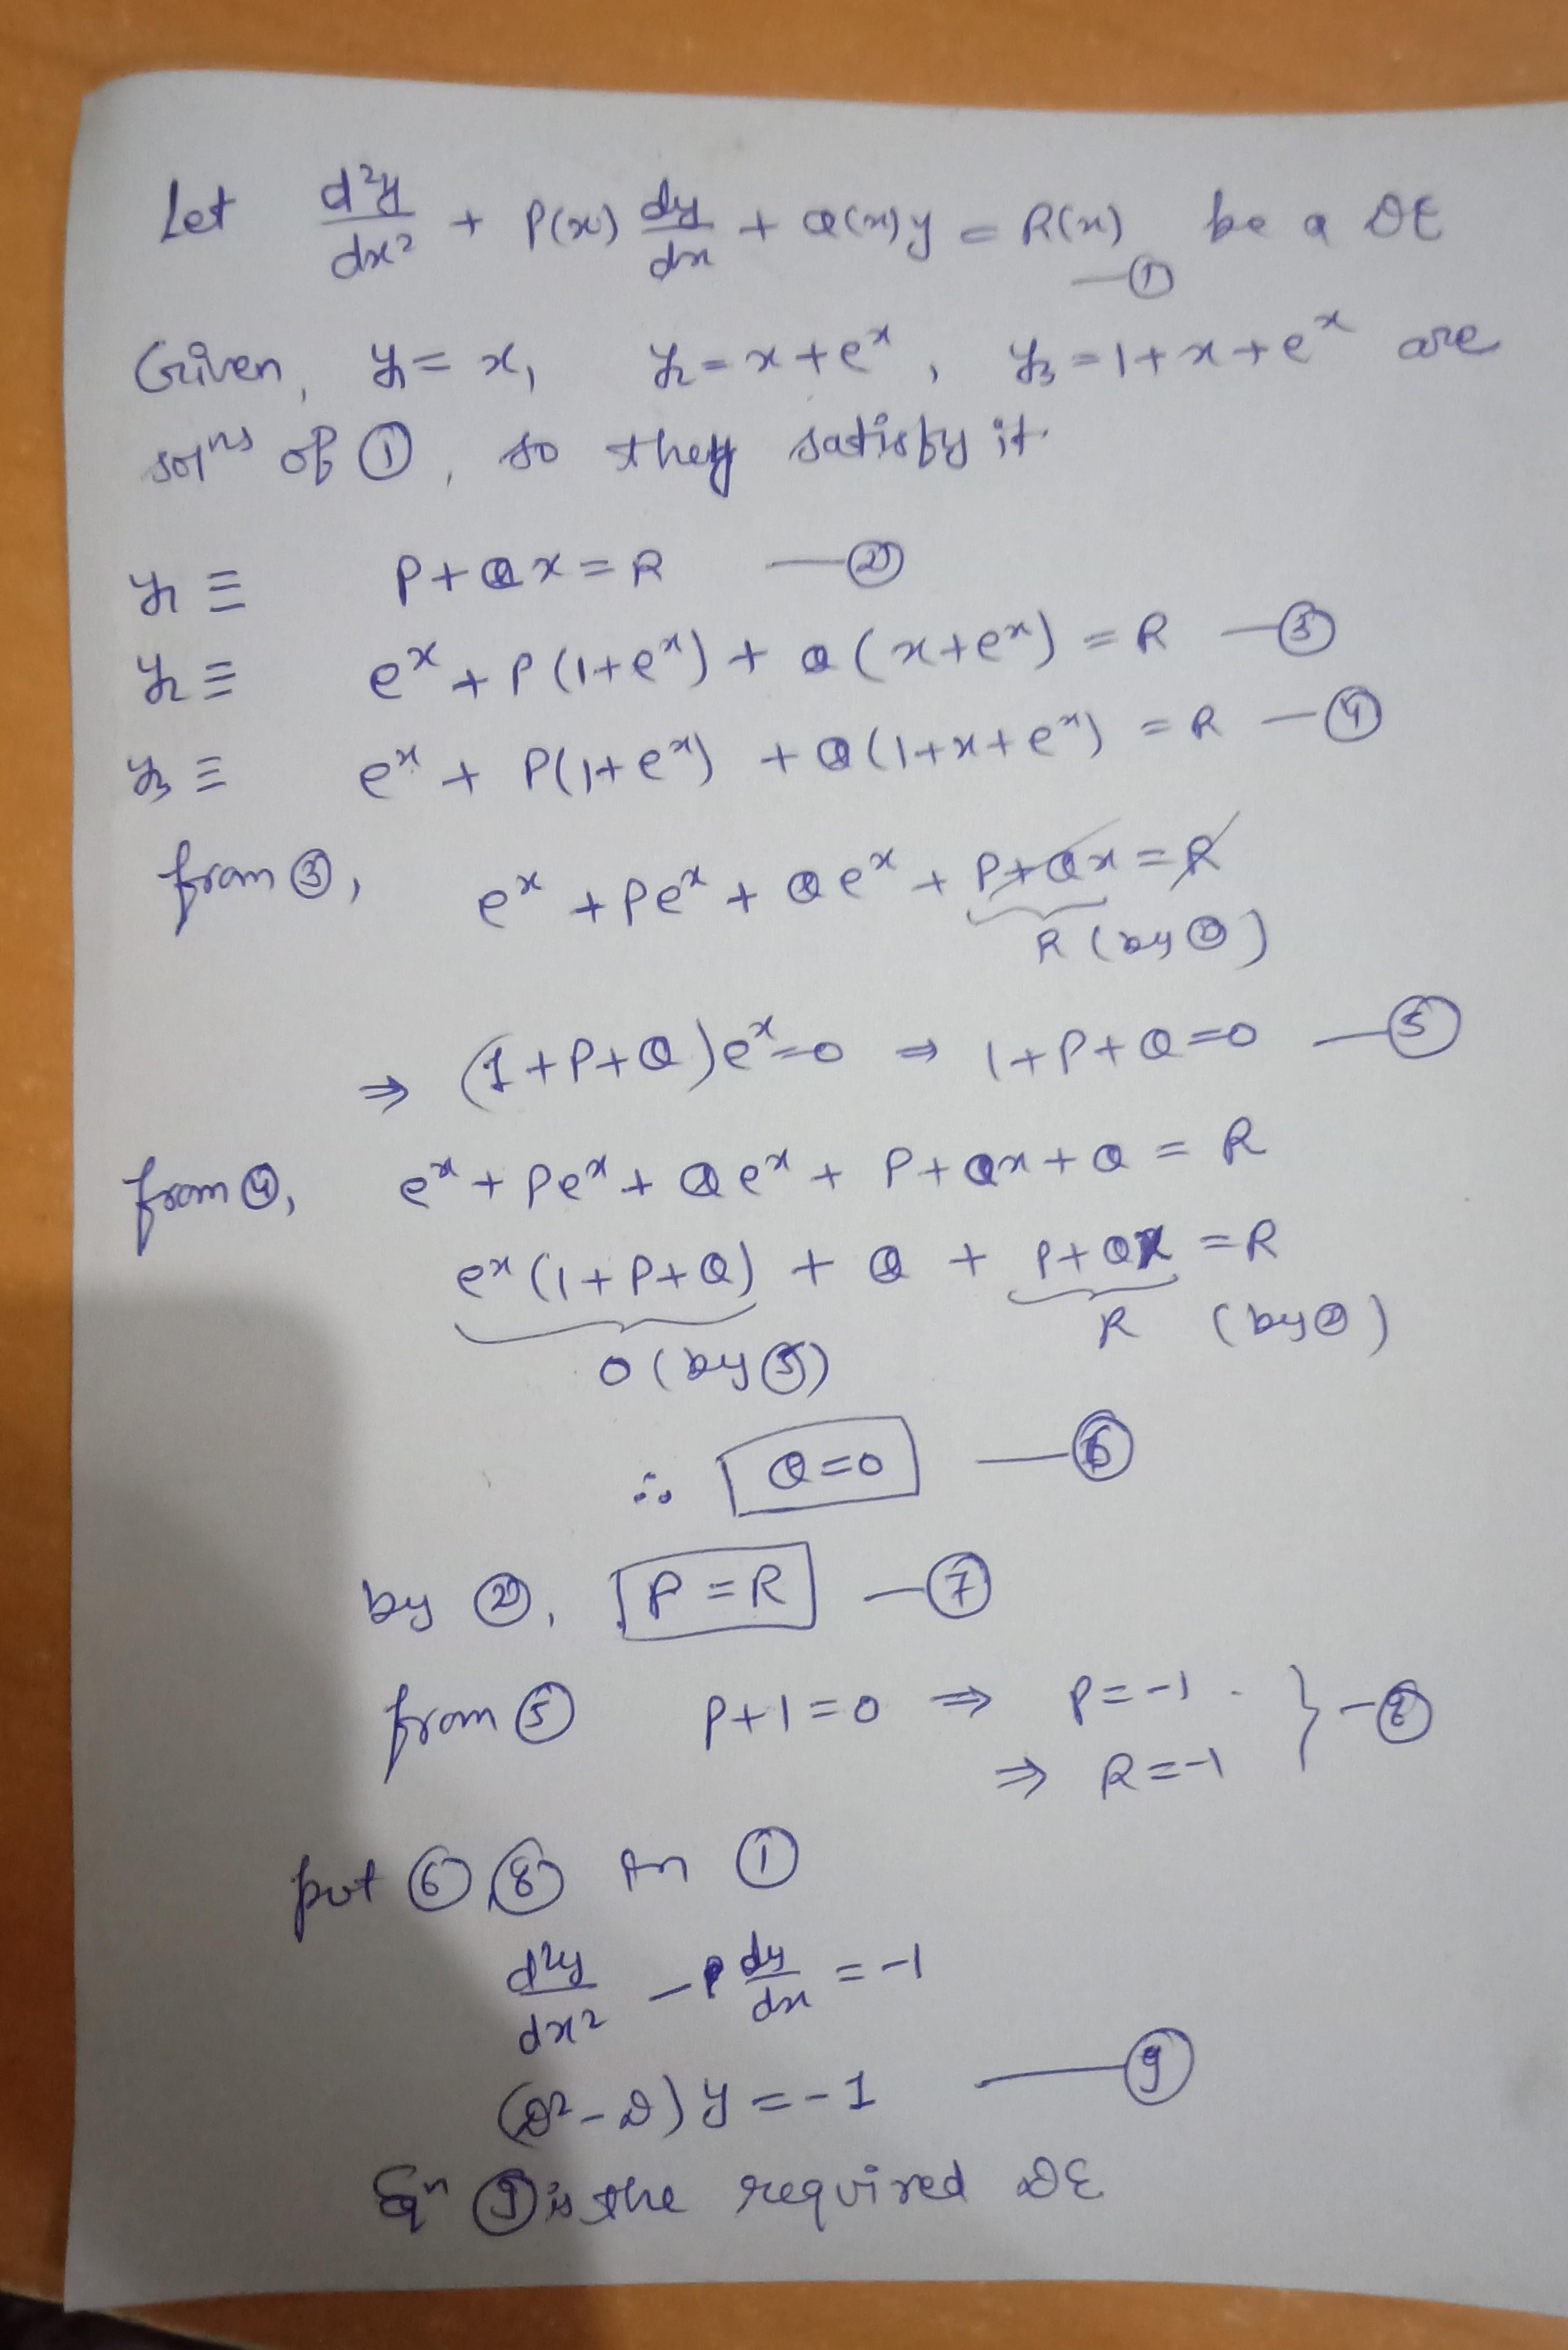 Let d²y/dx² + P(x) dy/dx + Q(x)y = R(x) —① be a DE
Given, y₁ = x, y₂ = x + eˣ, y₃ = 1 + x + eˣ are
solⁿˢ of ①, so they satisfy it.
y₁ ≡ P + Qx = R —②
y₂ ≡ eˣ + P(1+eˣ) + Q(x+eˣ) = R —③
y₃ ≡ eˣ + P(1+eˣ) + Q(1+x+eˣ) = R —④
from ③, eˣ + Peˣ + Qeˣ + P+Qx = R
R (by ②)
⇒ (1+P+Q)eˣ=0 ⇒ 1+P+Q=0 —⑤
from ④, eˣ + Peˣ + Qeˣ + P+Qx+Q = R
eˣ(1+P+Q) + Q + P+Qx = R
0 (by ⑤) R (by ②)
∴ Q=0 —⑥
by ②, P=R —⑦
from ⑤ P+1=0 ⇒ P=-1. } —⑧
⇒ R=-1
put ⑥,⑧ in ①
d²y/dx² - dy/dx = -1
(D²-D)y = -1 —⑨
Eⁿ ⑨ is the required DE